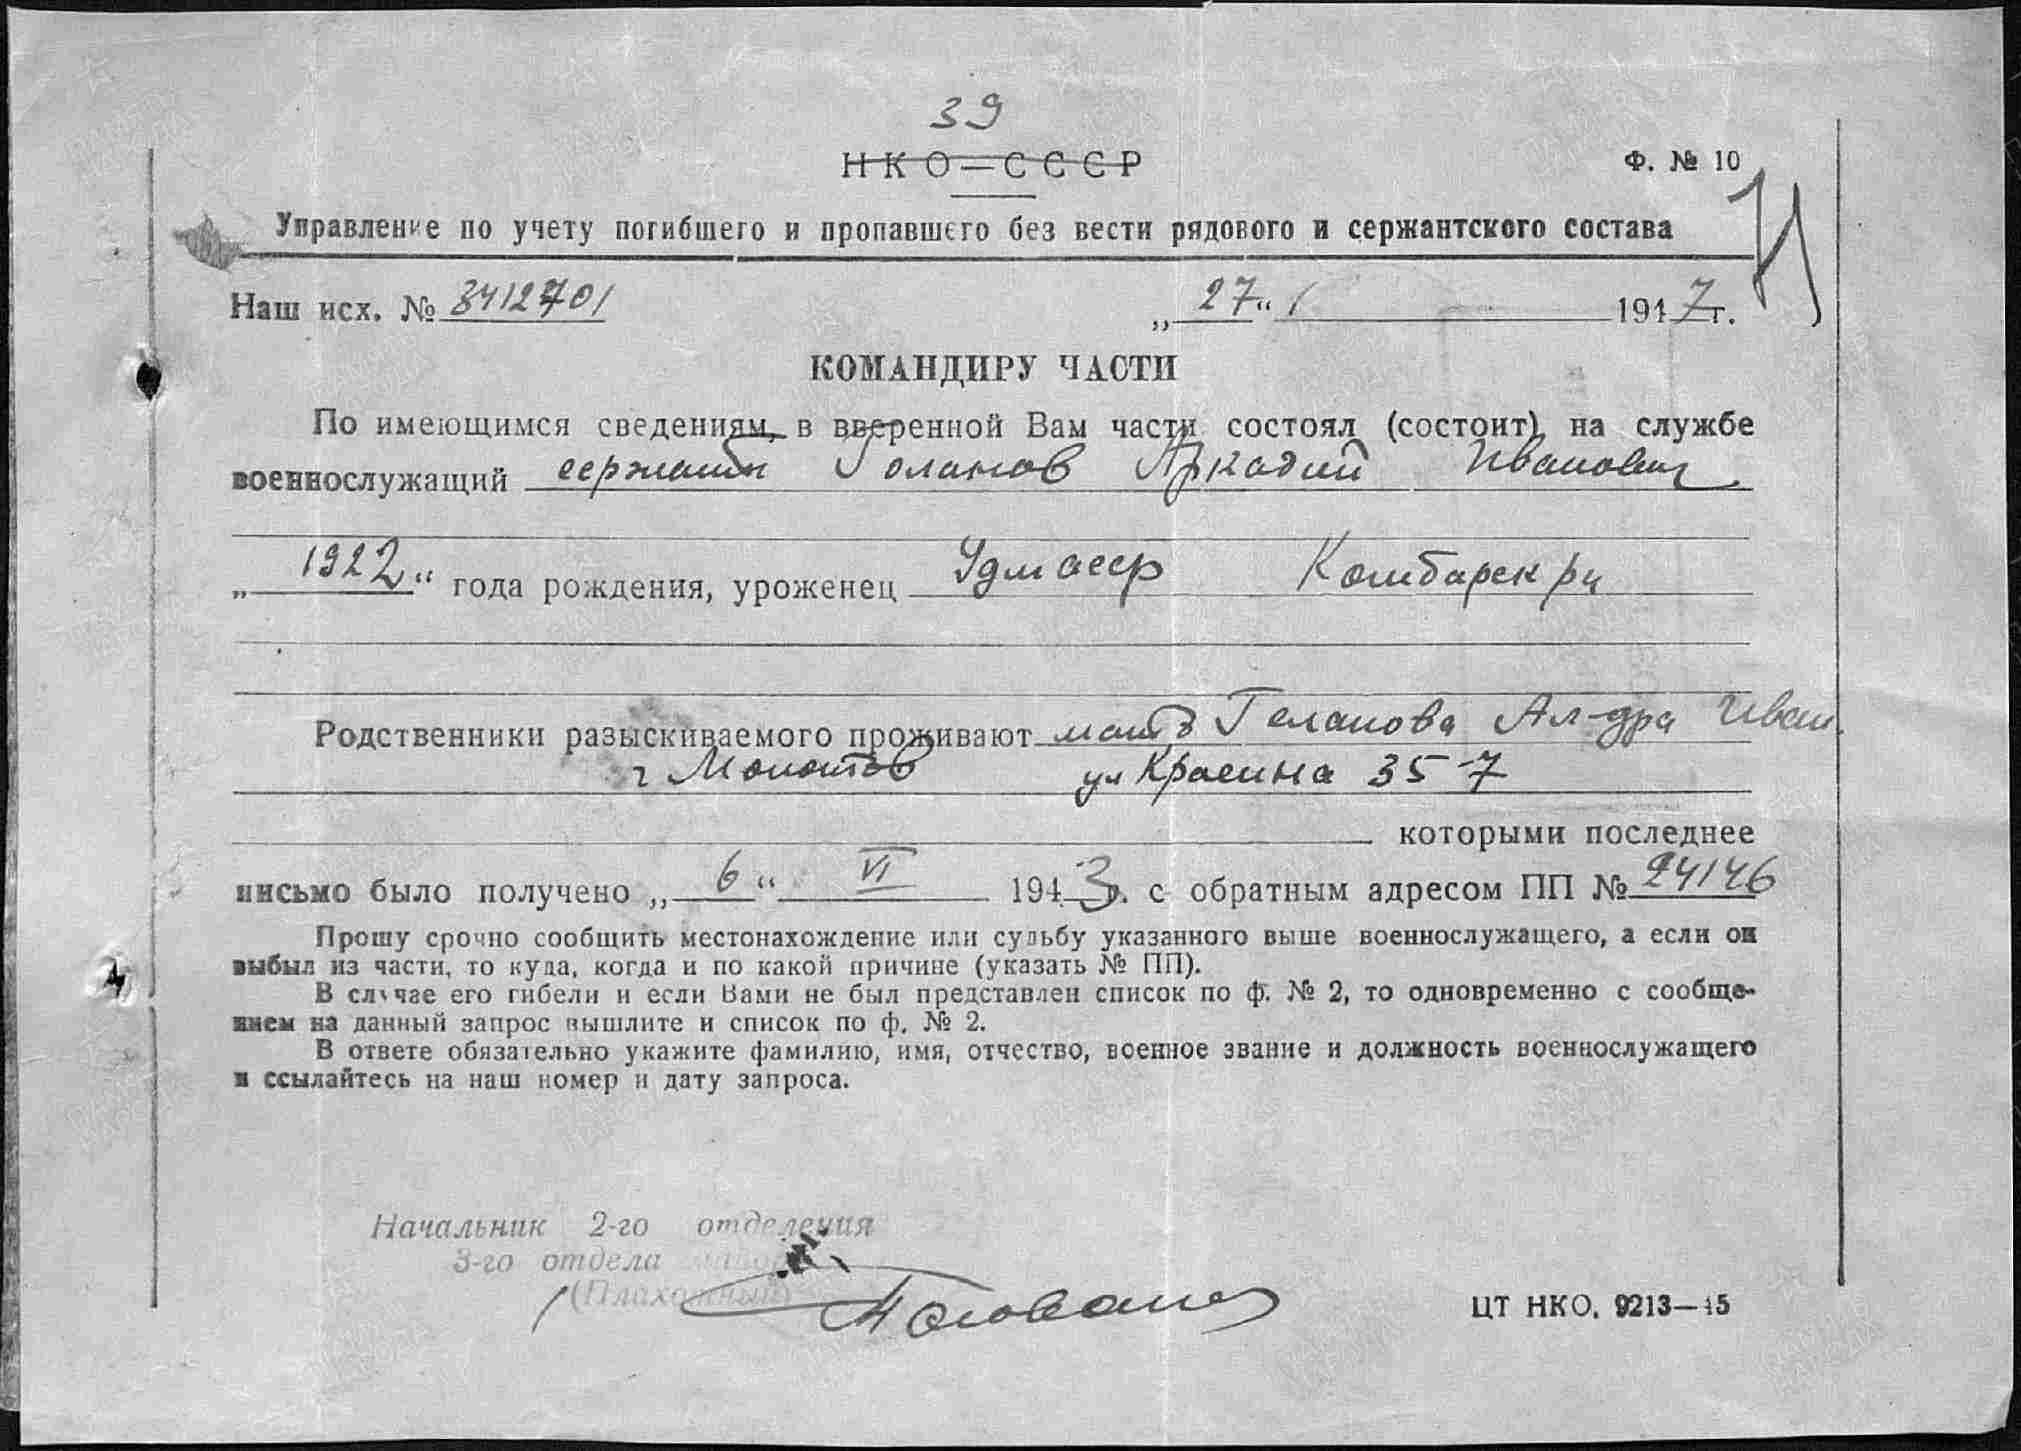 39
НКО—СССР
Ф. № 10
Управление по учету погибшего и пропавшего без вести рядового и сержантского состава
Наш исх. № 3412701 „27“ I 1947г.
КОМАНДИРУ ЧАСТИ
По имеющимся сведениям, в вверенной Вам части состоял (состоит) на службе
военнослужащий сержант Голанов Аркадий Иванович
„1922“ года рождения, уроженец Удмасср Камбарск рн
Родственники разыскиваемого проживают мать Геланова Ал-дра Иван.
г Молотов ул Красина 35-7
которыми последнее
письмо было получено „6“ VI 1943г. с обратным адресом ПП № 24146
Прошу срочно сообщить местонахождение или судьбу указанного выше военнослужащего, а если он
выбыл из части, то куда, когда и по какой причине (указать № ПП).
В случае его гибели и если Вами не был представлен список по ф. № 2, то одновременно с сообще-
нием на данный запрос вышлите и список по ф. № 2.
В ответе обязательно укажите фамилию, имя, отчество, военное звание и должность военнослужащего
и ссылайтесь на наш номер и дату запроса.
Начальник 2-го отделения
3-го отдела
ЦТ НКО. 9213—45